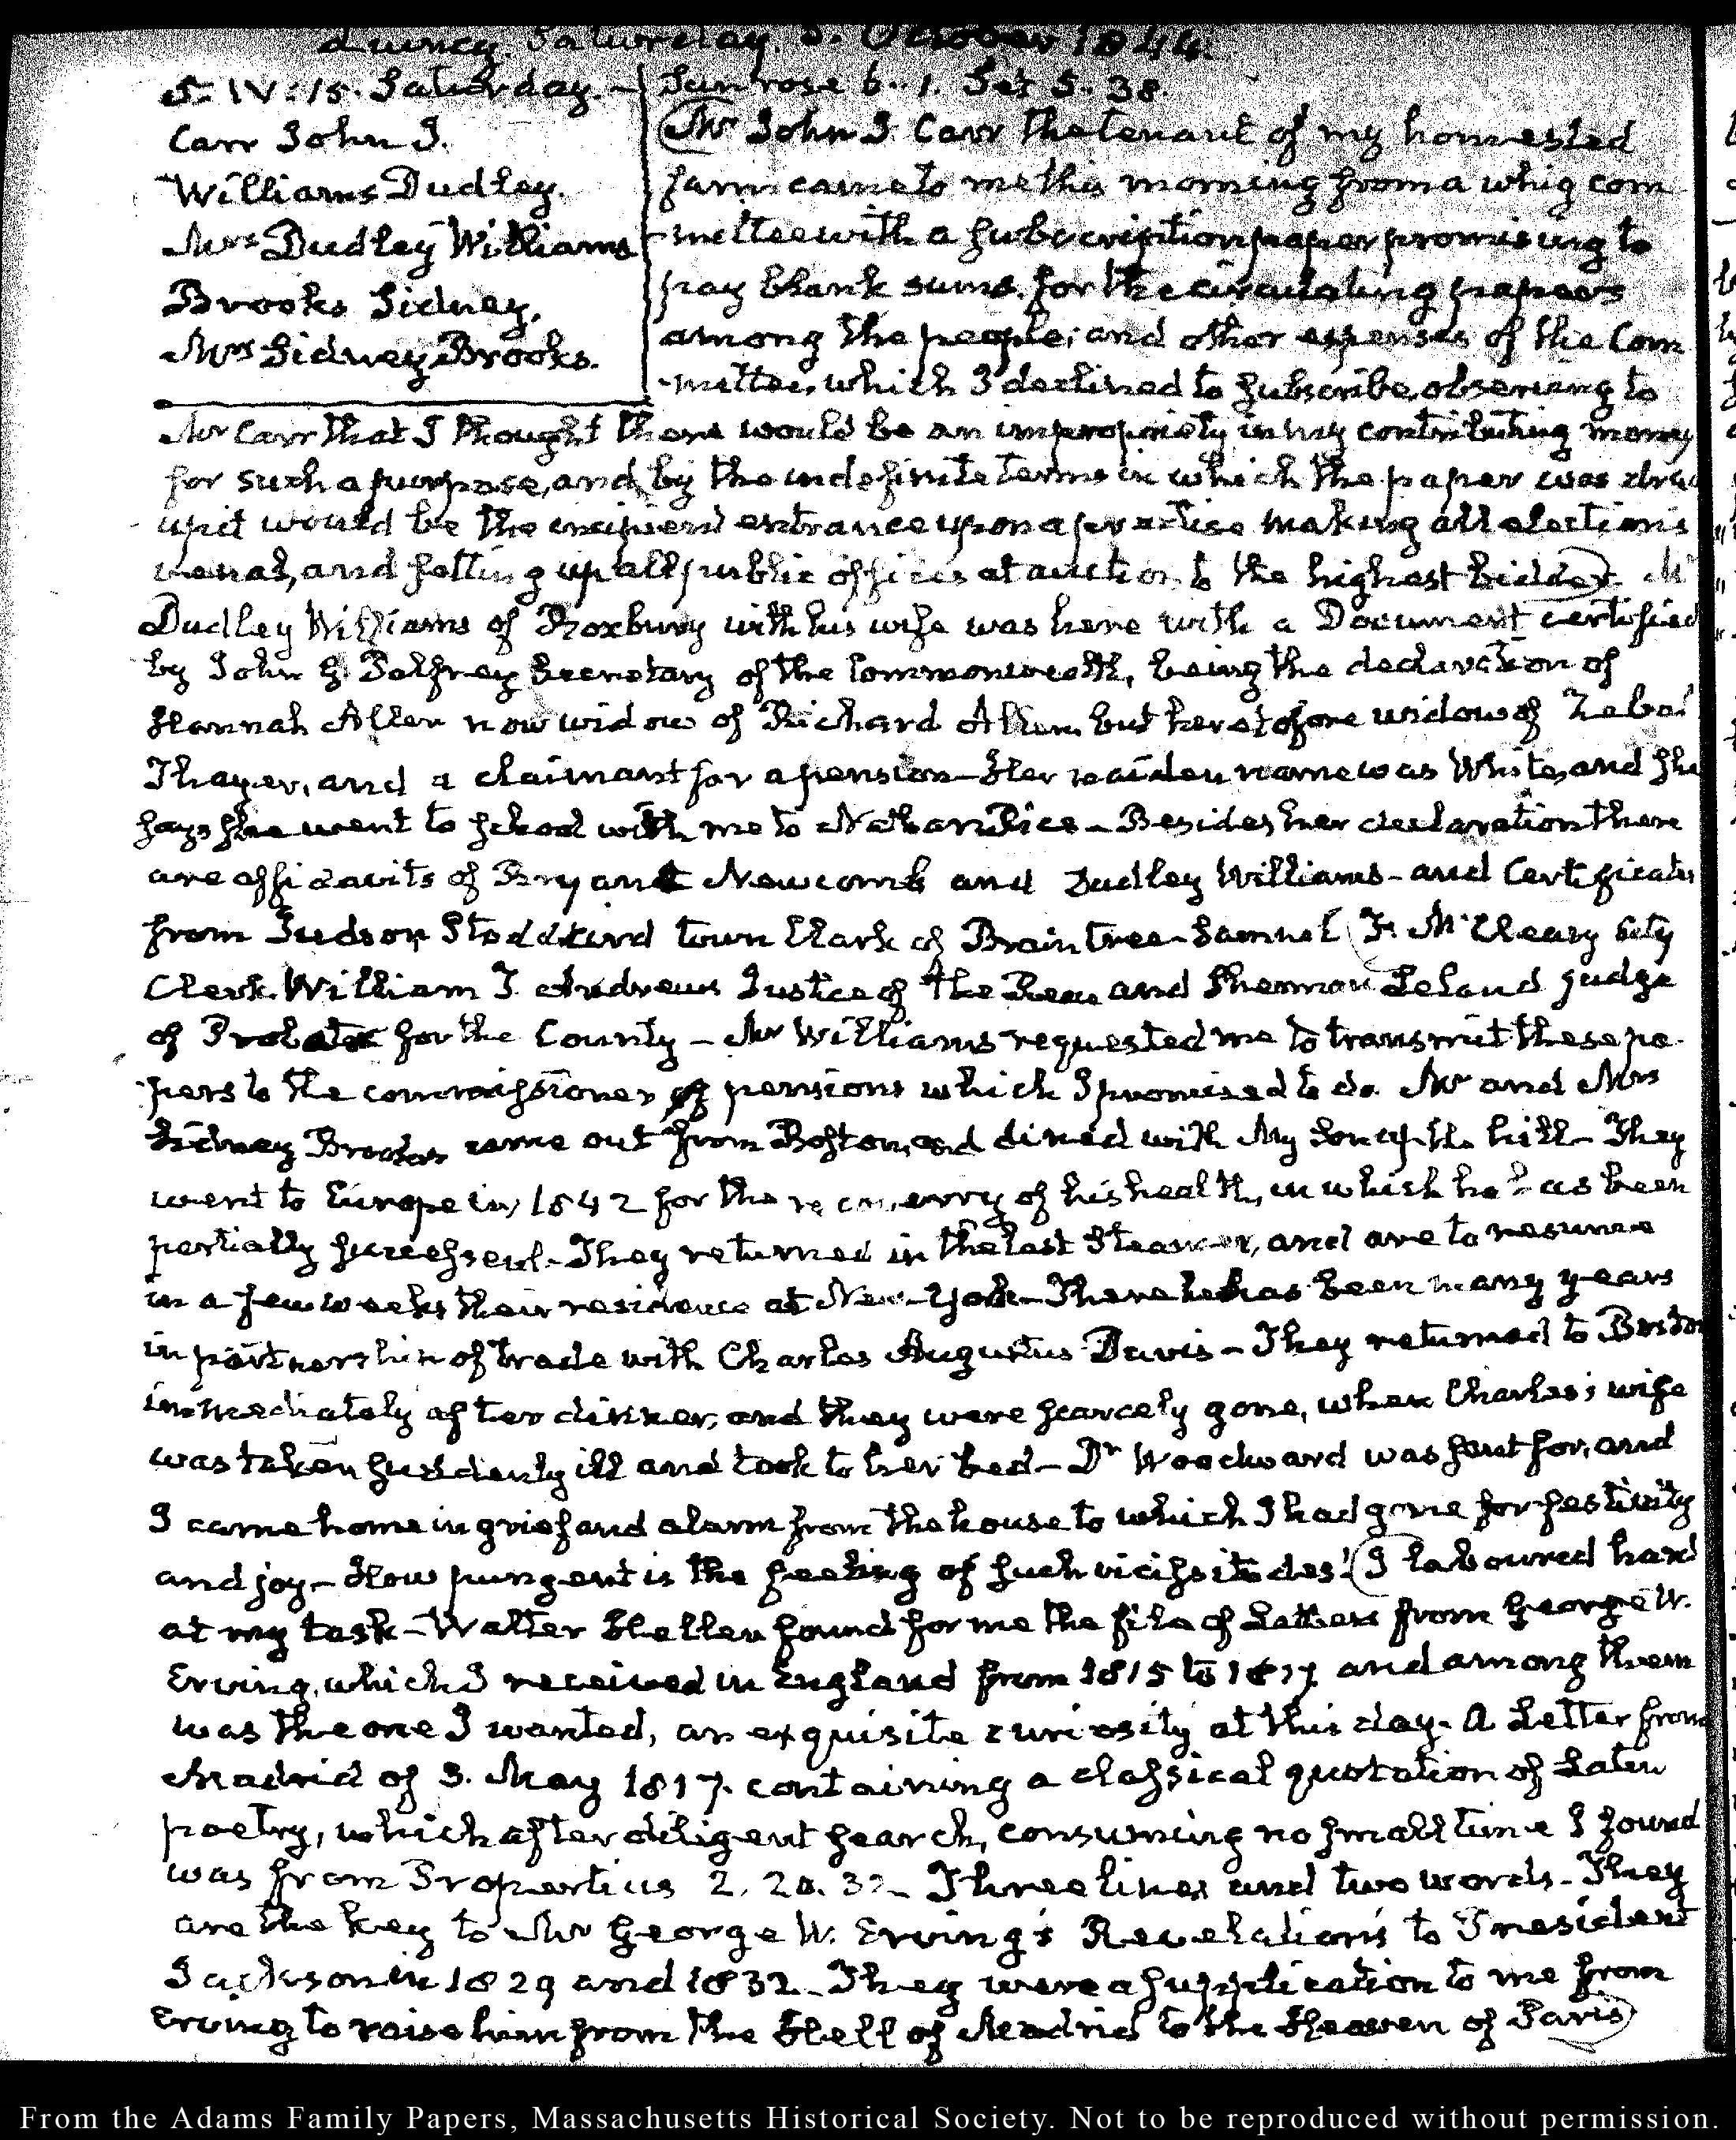 Quincy. Saturday. 5. October 1844.
5. IV:15. Saturday.
Carr John J.
Williams Dudley.
Mrs Dudley Williams
Brooks Sidney.
Mrs Sidney Brooks.
Sun rose 6..1. Set 5.38.
Mr John J. Carr the tenant of my homested
farm came to me this morning from a whig com
-mittee with a subscription paper promising to
pay blank sums for the circulating papers
among the people; and other expenses of the Com
-mittee, which I declined to subscribe, observing to
Mr Carr that I thought there would be an impropriety in my contributing money
for such a purpose, and by the indefinite terms in which the paper was
up it would be the incipient entrance upon a practice making all elections
venal, and setting up all public offices at auction to the highest bidder. Mr
Dudley Williams of Roxbury with his wife was here with a Document certified
by John G. Palfrey Secretary of the Commonwealth, being the declaration of
Hannah Allen now widow of Richard Allen but heretofore widow of
Thayer, and a claimant for a pension—Her maiden name was White, and she
says she went to school with me to Nathan Rice—Besides her declaration there
are affidavits of Bryant Newcomb and Dudley Williams—and Certificates
from Judson Stoddard town Clark of Braintree—Samuel F. McCleary City
Clerk. William T. Andrews Justice of the Peace and Sherman Leland judge
of Probate for the County—Mr Williams requested me to transmit these pa-
pers to the commissioner of pensions which I promised to do. Mr and Mrs
Sidney Brooks came out from Boston, and dined with My Son at the hill—They
went to Europe in 1842 for the recovery of his health, in which he has been
partially successful—They returned in the last Steamer, and are to resume
in a few weeks their residence at New-York—There he has been many years
in partnership of trade with Charles Augustus Davis—They returned to Boston
immediately after dinner, and they were scarcely gone, when Charles's wife
was taken suddenly ill and took to her bed—Dr Woodward was sent for, and
I came home in grief and alarm from the house to which I had gone for festivity
and joy—How pungent is the feeling of such vicissitudes! I laboured hard
at my task—Walter Hellen found for me the file of Letters from George W.
Erving, which I received in England from 1815 to 1817 and among them
was the one I wanted, an exquisite curiosity at this day. A Letter from
Madrid of 3. May 1817. containing a classical quotation of Latin
poetry, which after diligent search, consuming no small time I found
was from Propertius 2. 20. 32—Three lines and two words—They
are the key to Mr George W. Erving's Revelations to President
Jackson in 1829 and 1832—They were a supplication to me from
Erving to raise him from the Hell of Madrid to the Heaven of Paris
From the Adams Family Papers, Massachusetts Historical Society. Not to be reproduced without permission.